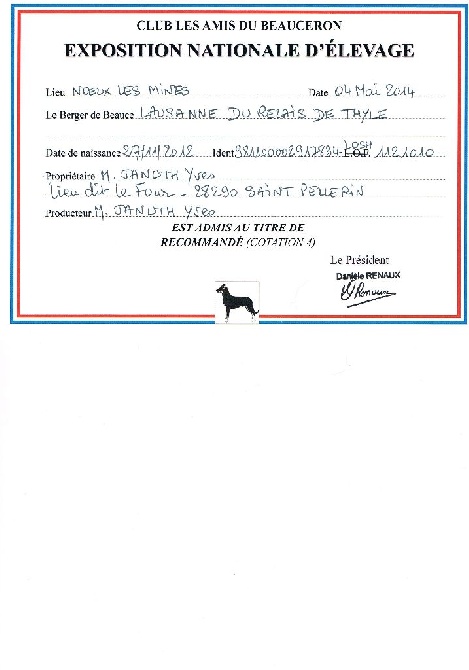 CLUB LES AMIS DU BEAUCERON
EXPOSITION NATIONALE D'ÉLEVAGE
Lieu NOEUX LES MINES Date 04 Mai 2014
Le Berger de Beauce LAUSANNE DU RELAIS DE THYLE
LOSH
Date de naissance 27/11/2012 Ident. L.O.F. 1121010
Propriétaire M. Yves
Lieu dit le Four - 28290 SAINT PELLERIN
Producteur M. Yves
EST ADMIS AU TITRE DE
RECOMMANDÉ (COTATION 4)
Le Président
Danièle RENAUX